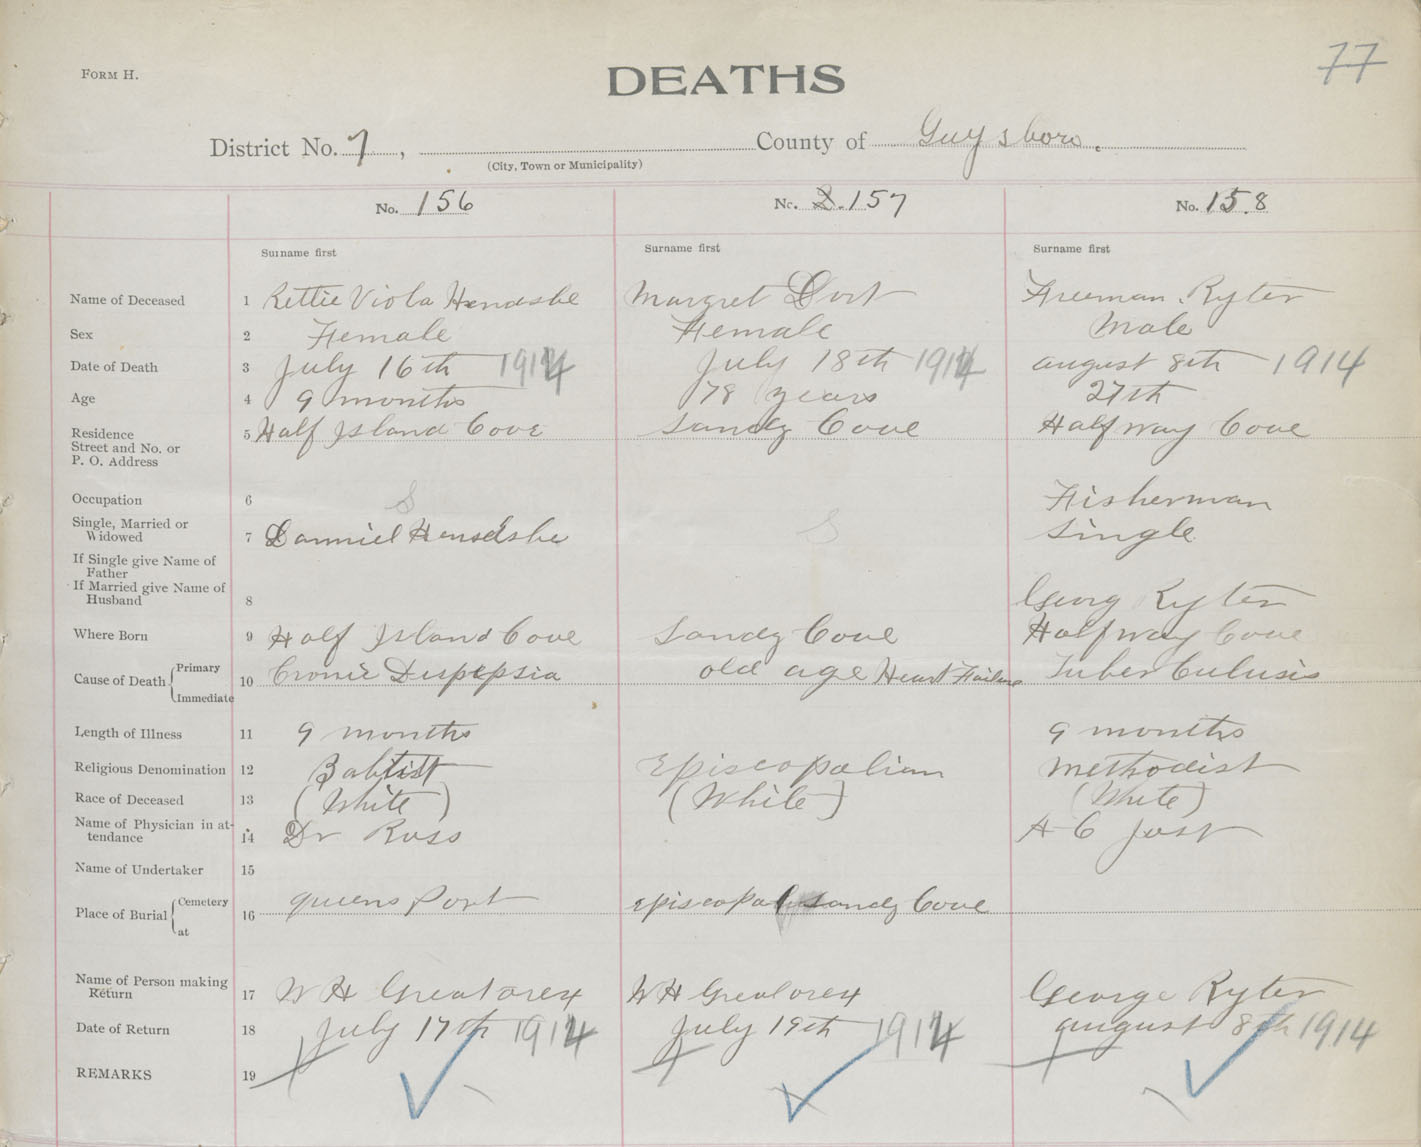 77
FORM H.
DEATHS
District No. 7, County of Guysboro.
(City, Town or Municipality)
No. 156 No. 2. 157 No. 158
Surname first Surname first Surname first
Name of Deceased 1 Rettie Viola Hendsbe Margret Dort Freeman Ryter
Sex 2 Female Female Male
Date of Death 3 July 16th 1914 July 18th 1914 august 8th 1914
Age 4 9 months 78 years 27th
Residence 5 Half Island Cove Sandy Cove Half way Cove
Street and No. or
P. O. Address
Occupation 6 S Fisherman
Single, Married or
Widowed 7 Danniel Hendsbe S Single
If Single give Name of
Father
If Married give Name of
Husband 8 Georg Ryter
Where Born 9 Half Island Cove Sandy Cove Half way Cove
Cause of Death Primary
Immediate 10 Cronic Dispepsia old age Heart Failure Tuber Culusis
Length of Illness 11 9 months 9 months
Religious Denomination 12 Babtist Episcopalian Methodist
Race of Deceased 13 (White) (White) (White)
Name of Physician in at-
tendance 14 Dr Ross A C Jost
Name of Undertaker 15
Place of Burial Cemetery
at 16 queens Port Episcopal Sandy Cove
Name of Person making
Return 17 W H Greatorex W H Greatorex George Ryter
Date of Return 18 July 17th 1914 July 19th 1914 august 8th 1914
REMARKS 19